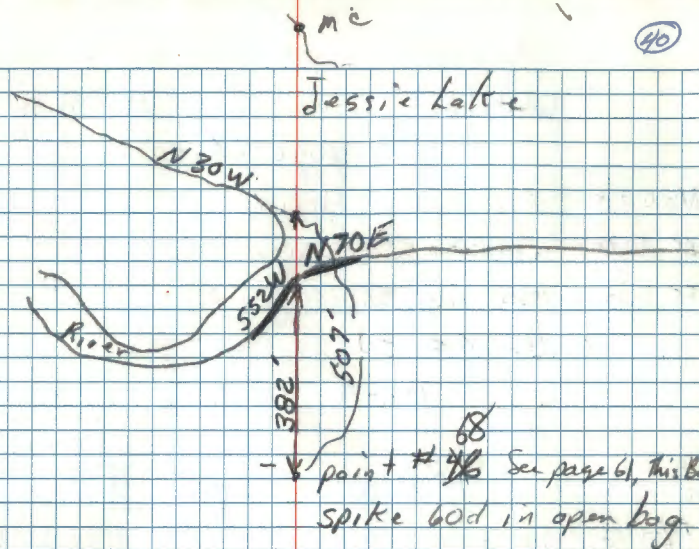 mc
40
Jessie Lake
N 30 W
N 70 E
S52W
River
382'
507'
68
point # See page 61, This B
spike 60d in open bog